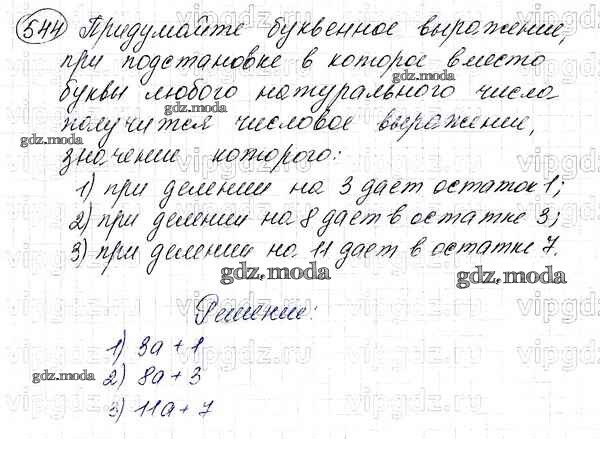 544 Придумайте буквенное выражение,
при подстановке в которое вместо
буквы любого натурального числа
получится числовое выражение,
значение которого:
1) при делении на 3 дает остаток 1;
2) при делении на 8 дает в остатке 3;
3) при делении на 11 дает в остатке 7.
Решение:
1) 3a + 1
2) 8a + 3
3) 11a + 7
gdz.moda
gdz.moda
gdz.moda
gdz.moda
gdz.moda
gdz.moda
vipgdz.ru